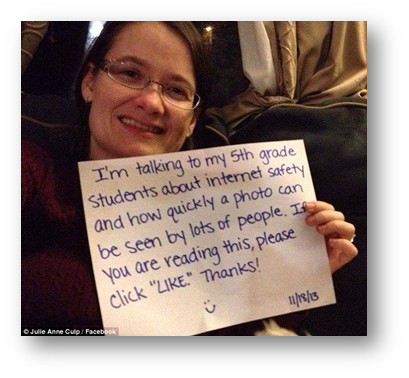 I'm talking to my 5th grade
students about internet safety
and how quickly a photo can
be seen by lots of people. If
you are reading this, please
click "LIKE." Thanks!
11/18/13
© Julie Anne Culp / Facebook